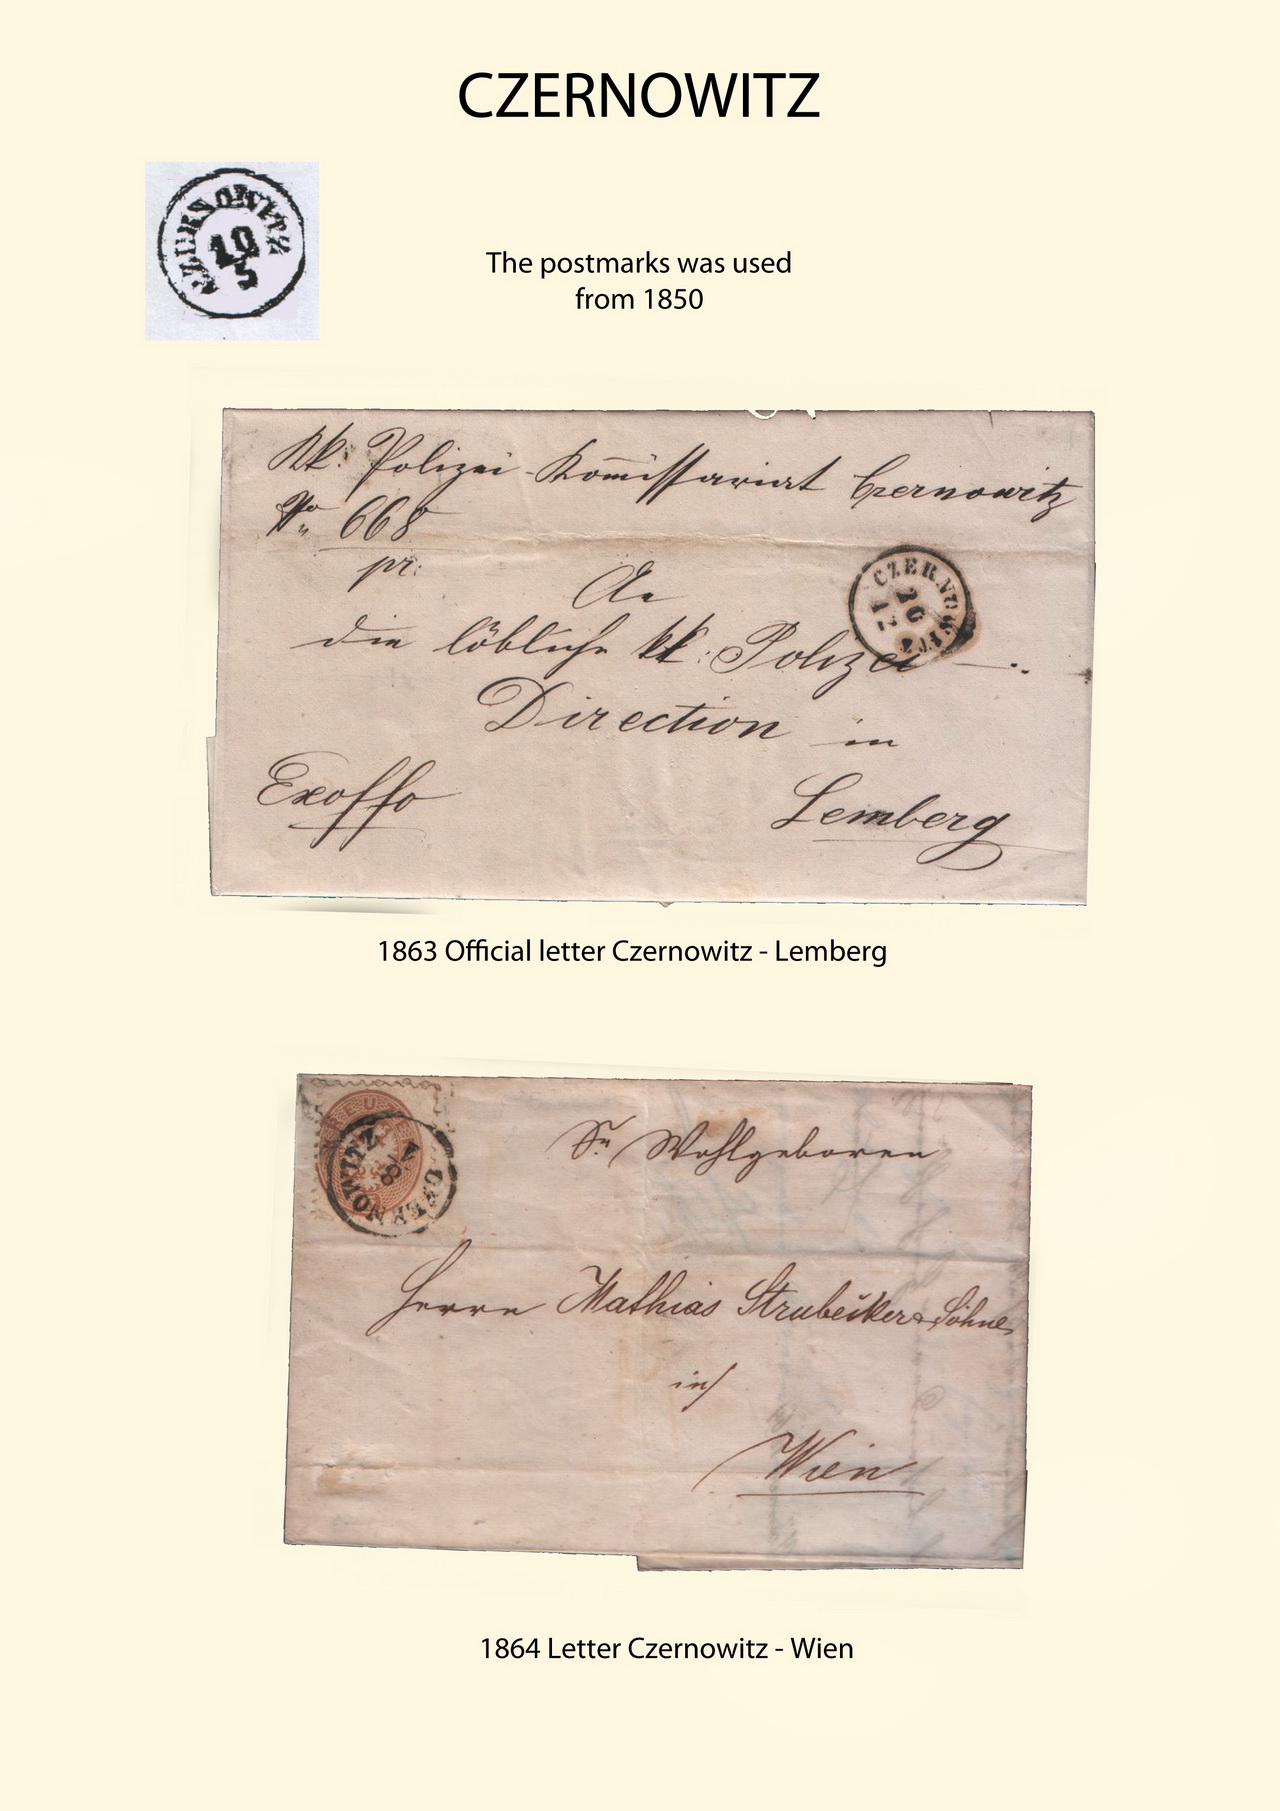 CZERNOWITZ
CZERNOWITZ
19
5
The postmarks was used
from 1850
KK: Polizei-Kom̄issariat Czernowitz
No 668
pr:
An
die löbliche kk: Polizei
Direction in
Exoffo
Lemberg
CZERNOWITZ
20
12
1863 Official letter Czernowitz - Lemberg
KREU
CZERNOWITZ
Sr Wohlgeboren
Herrn Mathias Strubecker & Söhne
in
Wien
1864 Letter Czernowitz - Wien